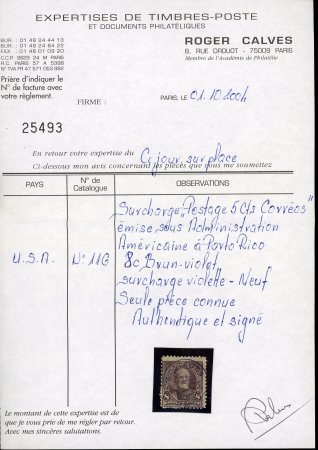 EXPERTISES DE TIMBRES-POSTE
ET DOCUMENTS PHILATÉLIQUES
BUR. : 01 48 24 44 13
BUR. : 01 48 24 64 22
FAX : 01 48 01 09 20
C.C.P. 9625 24 M PARIS
R.C. PARIS 57 A 5398
N° TVA FR 47 571 053 982
ROGER CALVES
8, RUE DROUOT - 75009 PARIS
Membre de l'Académie de Philatélie
Prière d'indiquer le
N° de facture avec
votre règlement.
FIRME :
PARIS, LE 01.10.2004
25493
En retour votre expertise du Ce jour sur place
Ci-dessous mon avis concernant les pièces que vous me soumettez
PAYS
N° de
Catalogue
OBSERVATIONS
Surcharge "Postage 5 Cts Correos"
émise sous Administration
Américaine à Porto Rico
U.S.A. N° 116 8c Brun-violet
surcharge violette - Neuf
Seule pièce connue
Authentique et signé
Le montant de cette expertise est de
que je vous prie de me régler par retour.
Avec mes sincères salutations.